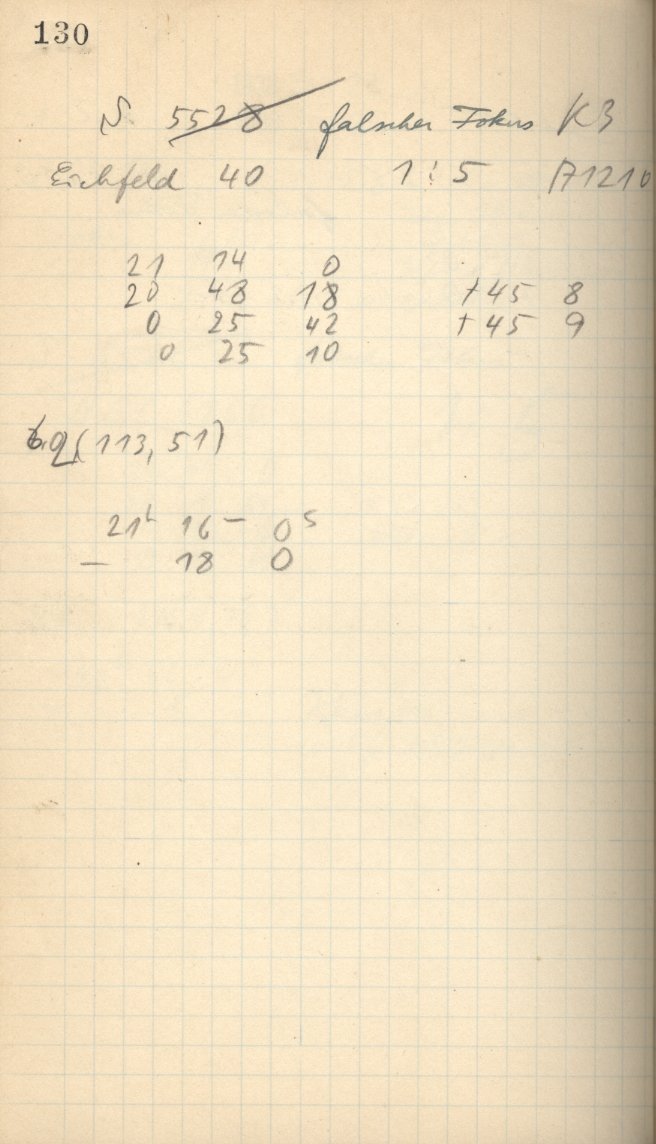 130
S. 5528 falscher Fokus K3
Eichfeld 40 1:5 A1210
21 14 0
20 48 18 +45 8
0 25 42 +45 9
0 25 10
(113, 51)
21h 16– 0s
– 18 0